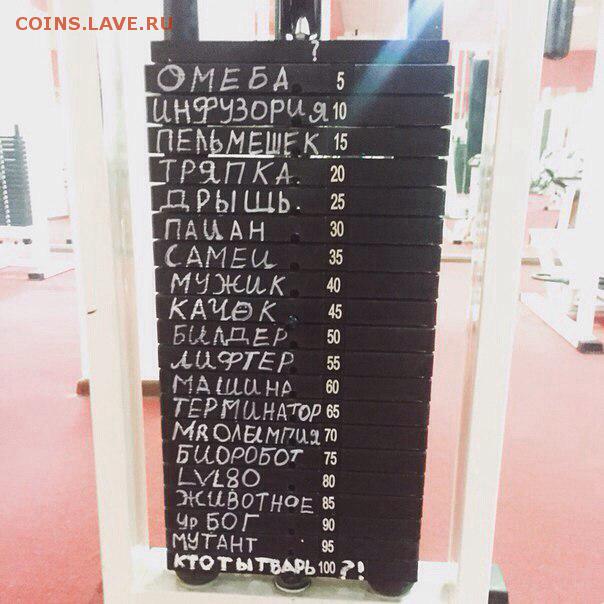 COINS.LAVE.RU
?
ОМЕБА 5
ИНФУЗОРИЯ 10
ПЕЛЬМЕШЕК 15
ТРЯПКА. 20
ДРЫЩЬ. 25
ПАЦАН 30
САМЕЦ 35
МУЖИК 40
КАЧОК 45
БИЛДЕР 50
ЛИФТЕР 55
МАШИНА 60
ТЕРМИНАТОР 65
MR ОЛЫМПИЯ 70
БИОРОБОТ 75
LVL80 80
ЖИВОТНОЕ 85
УР БОГ 90
МУТАНТ 95
КТО ТЫ ТВАРЬ 100 ?!